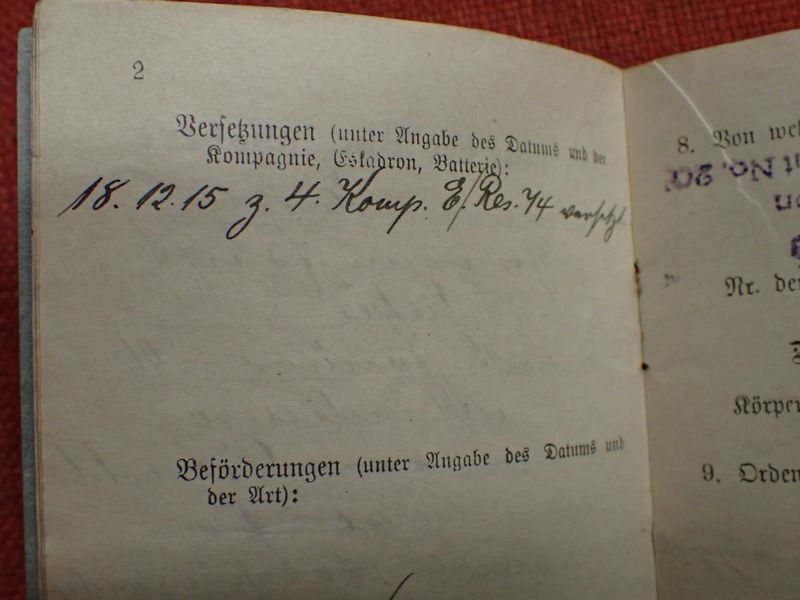 2
Versetzungen (unter Angabe des Datums und der
Kompagnie, Eskadron, Batterie):
18. 12. 15 z. 4. Komp. E/Res. 74 versetzt.
Beförderungen (unter Angabe des Datums und
der Art):
8. Von wel
No. 20
on
Nr. de
Körper
9. Orden